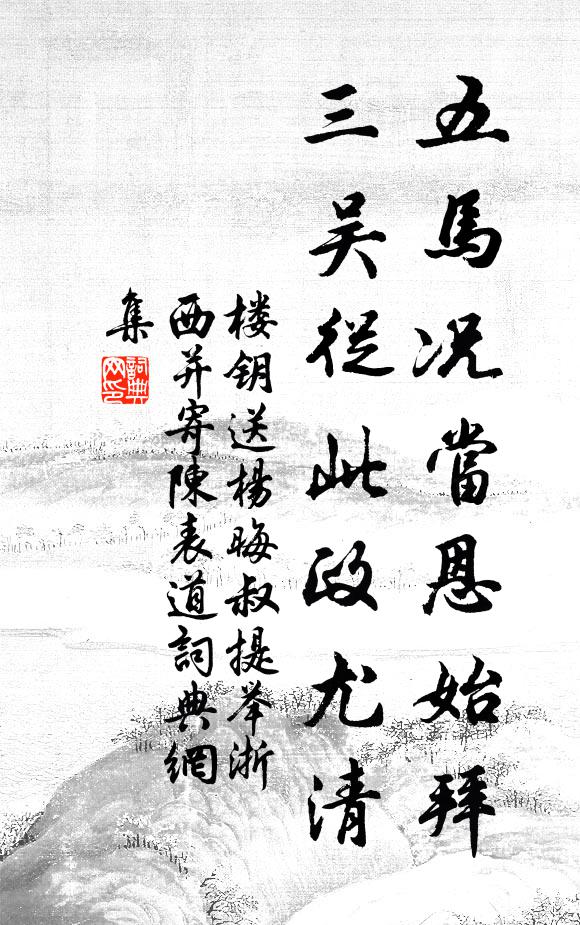 五馬况當恩始拜
三吴從此政尤清
楼钥送楊晦叔提举浙
西并寄陳表道詞典網
集
詞典
网印